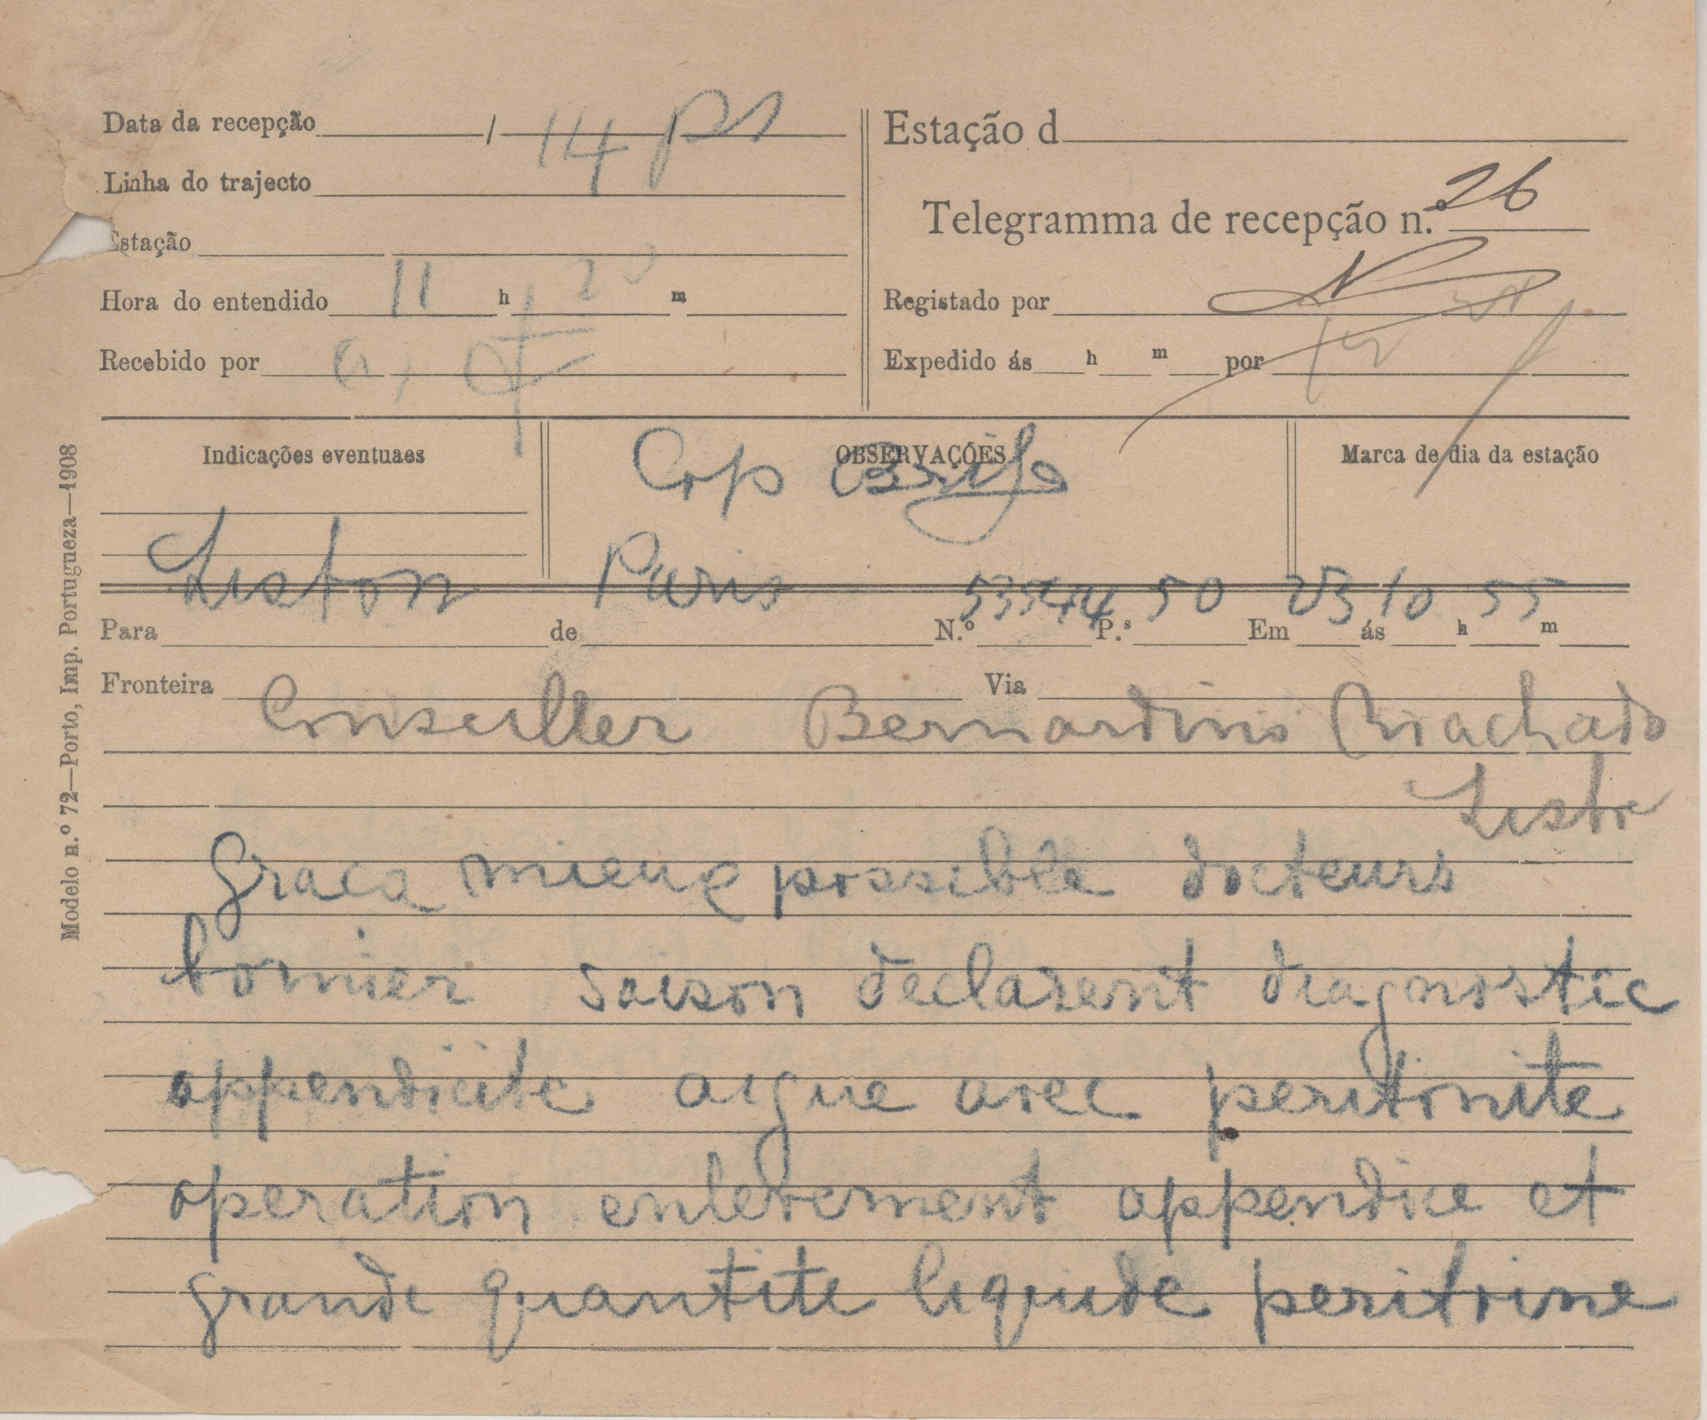 Data da recepção / 14 ps
Linha do trajecto
Estação
Hora do entendido 11 h 20 m
Recebido por
Estação d
Telegramma de recepção n. 26
Registado por
Expedido ás h m por
Indicações eventuaes
OBSERVAÇÕES
Marca de dia da estação
Crp
Modelo n.º 72—Porto, Imp. Portugueza—1908
Para Lisbon de Paris N.º 53544 P.s 50 Em 23 ás 10 h 55 m
Fronteira Via
Conseiller Bernardino Machado
Lisbe
Graca mieux possible docteurs
bomier saison declarent diagnostic
appendicite aigue avec peritonite
operation enlevement appendice et
grande quantite liquide peritoine